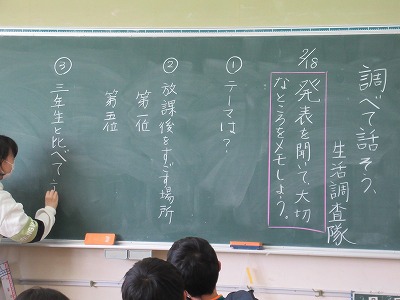 調べて話そう、
生活調査隊
2/18
発表を聞いて、大切
なところをメモしよう。
① テーマは?
② 放課後をすごす場所
第一位
第五位
③ 三年生と比べて